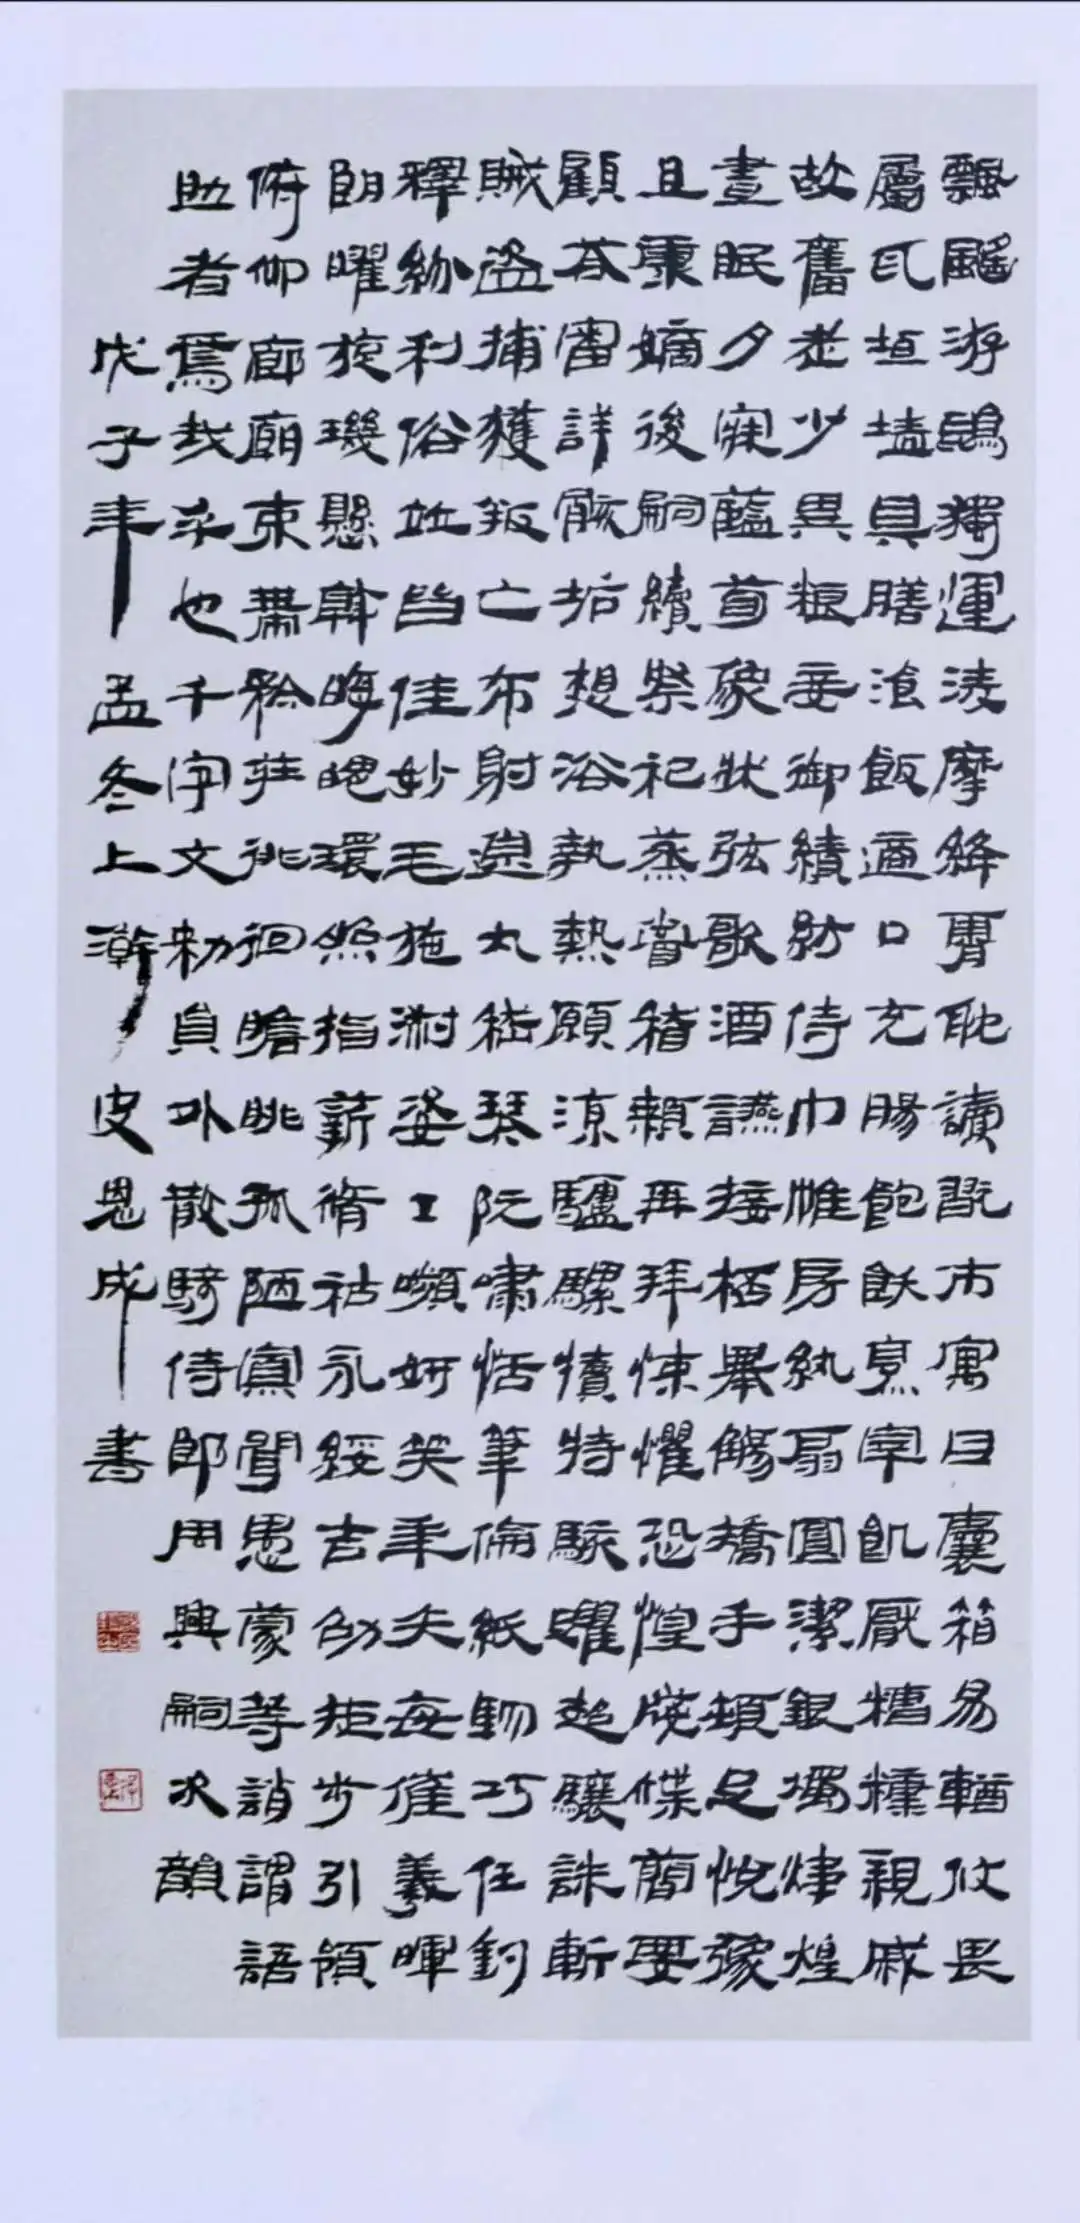 飄颻游鵾獨運淩摩絳霄耽讀翫市寓目囊箱易輶攸畏
屬耳垣墻具膳湌飯適口充腸飽飫烹宰飢厭糟糠親戚
故舊老少異粮妾御績紡侍巾帷房紈扇圓潔銀燭煒煌
晝眠夕寐藍筍象牀弦歌酒讌接桮舉觴矯手頓足悅豫
且康嫡後嗣續祭祀蒸嘗稽顙再拜悚懼恐惶牋牒簡要
顧荅審詳骸垢想浴執熱願涼驢騾犢特駭躍超驤誅斬
賊盜捕獲叛亡布射遼丸嵇琴阮嘯恬筆倫紙鈞巧任釣
釋紛利俗竝皆佳妙毛施淑姿工嚬妍笑年矢每催羲暉
朗曜旋璣懸斡晦魄環照指薪脩祜永綏吉劭矩步引領
俯仰廊廟束帶矜莊徘徊瞻眺孤陋寡聞愚蒙等誚謂語
助者焉哉乎也千字文勑員外散騎侍郎周興嗣次韻
戊子年孟冬上澣皮恩成書